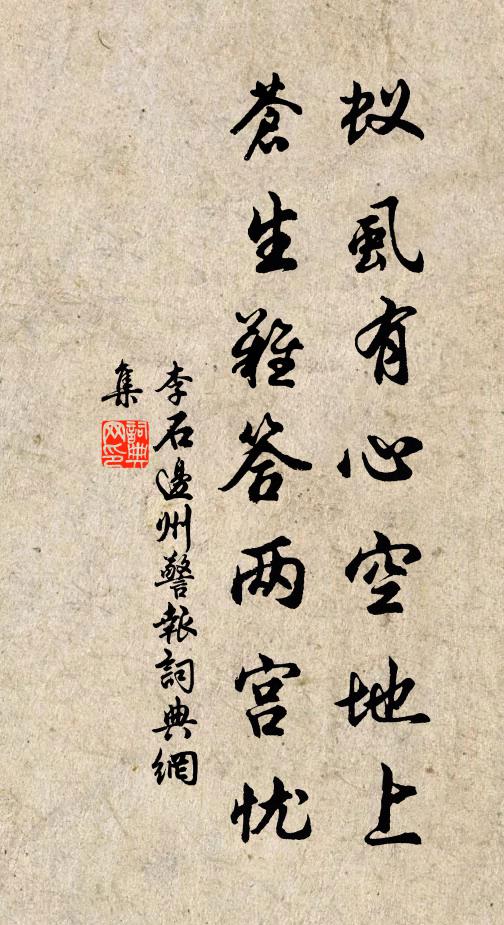 蚁虱有心空地上
苍生难答两宫忧
李石邊州警報詞典網
集
詞典
网印